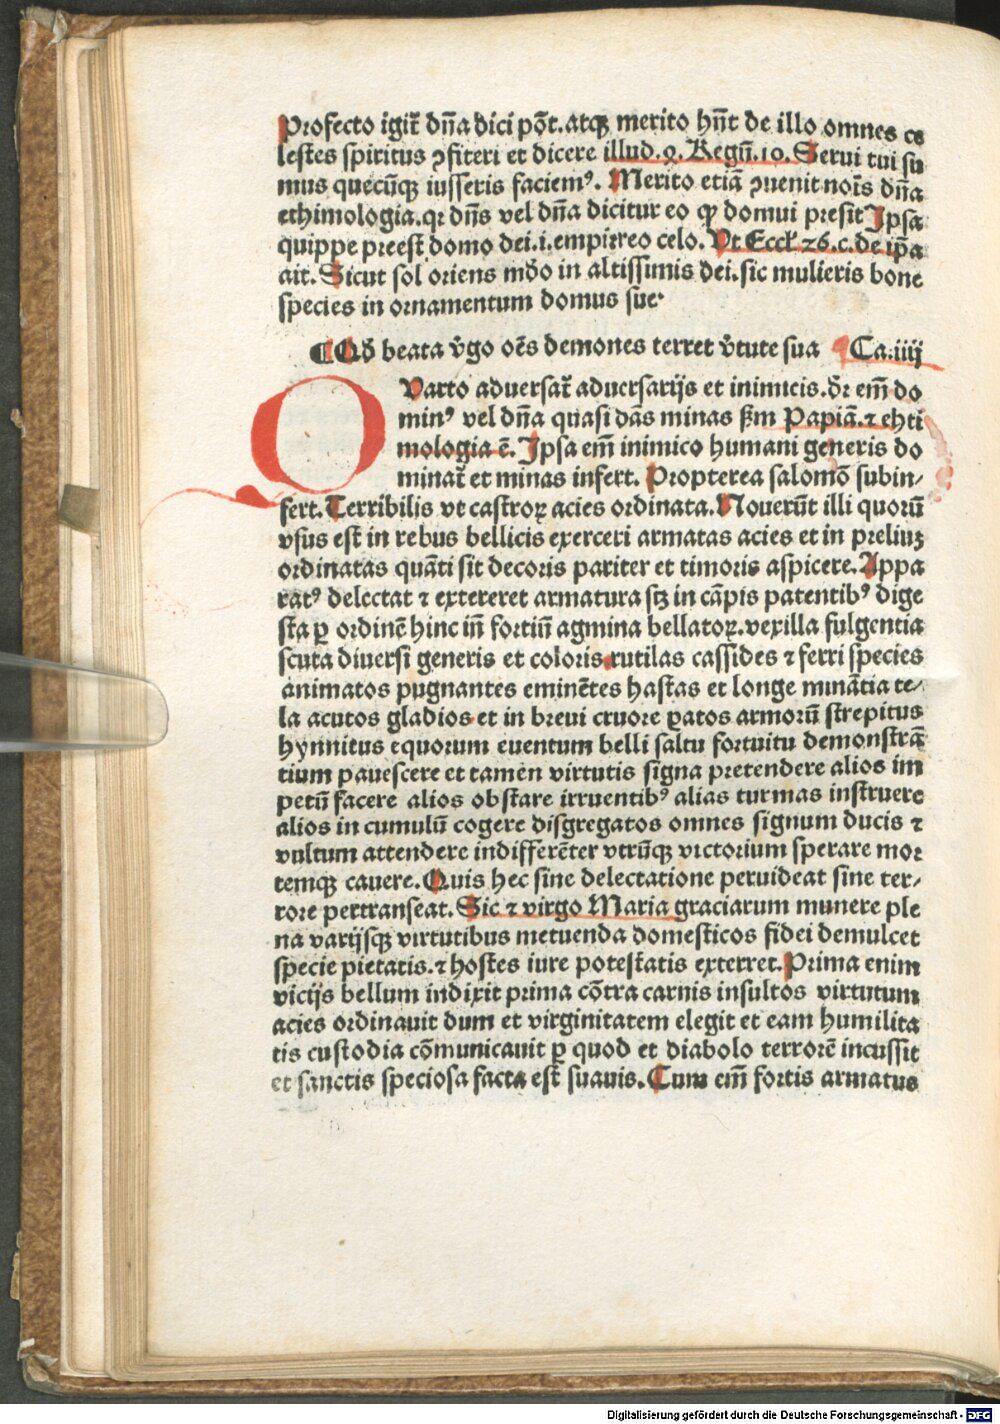 Profecto igit̃ dña dici põt. atqꝫ merito hñt de illo omnes ce
lestes spiritus ꝯfiteri et dicere illud. 9. Regũ. 10. Serui tui su
mus quecũqꝫ iusseris faciemꝰ. Merito etiã ꝯuenit noĩs dñã
ethimologia. qꝛ dñs vel dña dicitur eo ꝙ domui presit Ipsa
quippe preest domo dei. i. empirreo celo. Vt Eccł. 26. c. de ip̃a
ait. Sicut sol oriens mũdo in altissimis dei. sic mulieris bone
species in ornamentum domus sue.
¶ Qđ beata v̑go oẽs demones terret v̑tute sua ¶ Ca. iiij
QVarto aduersat̃ aduersarijs et inimicis. dr̃ em̃ do
minꝰ vel dña quasi dãs minas ẜm Papiã. ⁊ ehti
mologia ẽ. Ipsa em̃ inimico humani generis do
minat̃ et minas infert. Propterea salomõ subin⸗
fert. Terribilis vt castroꝝ acies ordinata. Nouerũt illi quorũ
vsus est in rebus bellicis exerceri armatas acies et in preliuꝫ
ordinatas quãti sit decoris pariter et timoris aspicere. Appa
ratꝰ delectat ⁊ extereret armatura sꝫ in cãpis patentibꝰ dige
sta ꝑ ordinẽ hinc iñ fortiũ agmina bellatoꝝ. vexilla fulgentia
scuta diuersi generis et coloris rutilas cassides ⁊ ferri species
animatos pugnantes eminẽtes hastas et longe minãtia te⸗
la acutos gladios et in breui cruore ꝑatos armorũ strepitus
hynnitus equorum euentum belli saltu fortuitu demonstrã
tium pauescere et tamen virtutis signa pretendere alios im
petũ facere alios obstare irruentibꝰ alias turmas instruere
alios in cumulũ cogere disgregatos omnes signum ducis ⁊
vultum attendere indifferẽter vtrũqꝫ victorium sperare mor
temqꝫ cauere. Quis hec sine delectatione peruideat sine ter⸗
rore pertranseat. Sic ⁊ virgo Maria graciarum munere ple
na varijsqꝫ virtutibus metuenda domesticos fidei demulcet
specie pietatis. ⁊ hostes iure potestatis exterret. Prima enim
vicijs bellum indixit prima cõtra carnis insultos virtutum
acies ordinauit dum et virginitatem elegit et eam humilita
tis custodia cõmunicauit ꝑ quod et diabolo terrorẽ incussit
et sanctis speciosa facta est suauis. Cum em̃ fortis armatus
Digitalisierung gefördert durch die Deutsche Forschungsgemeinschaft - DFG